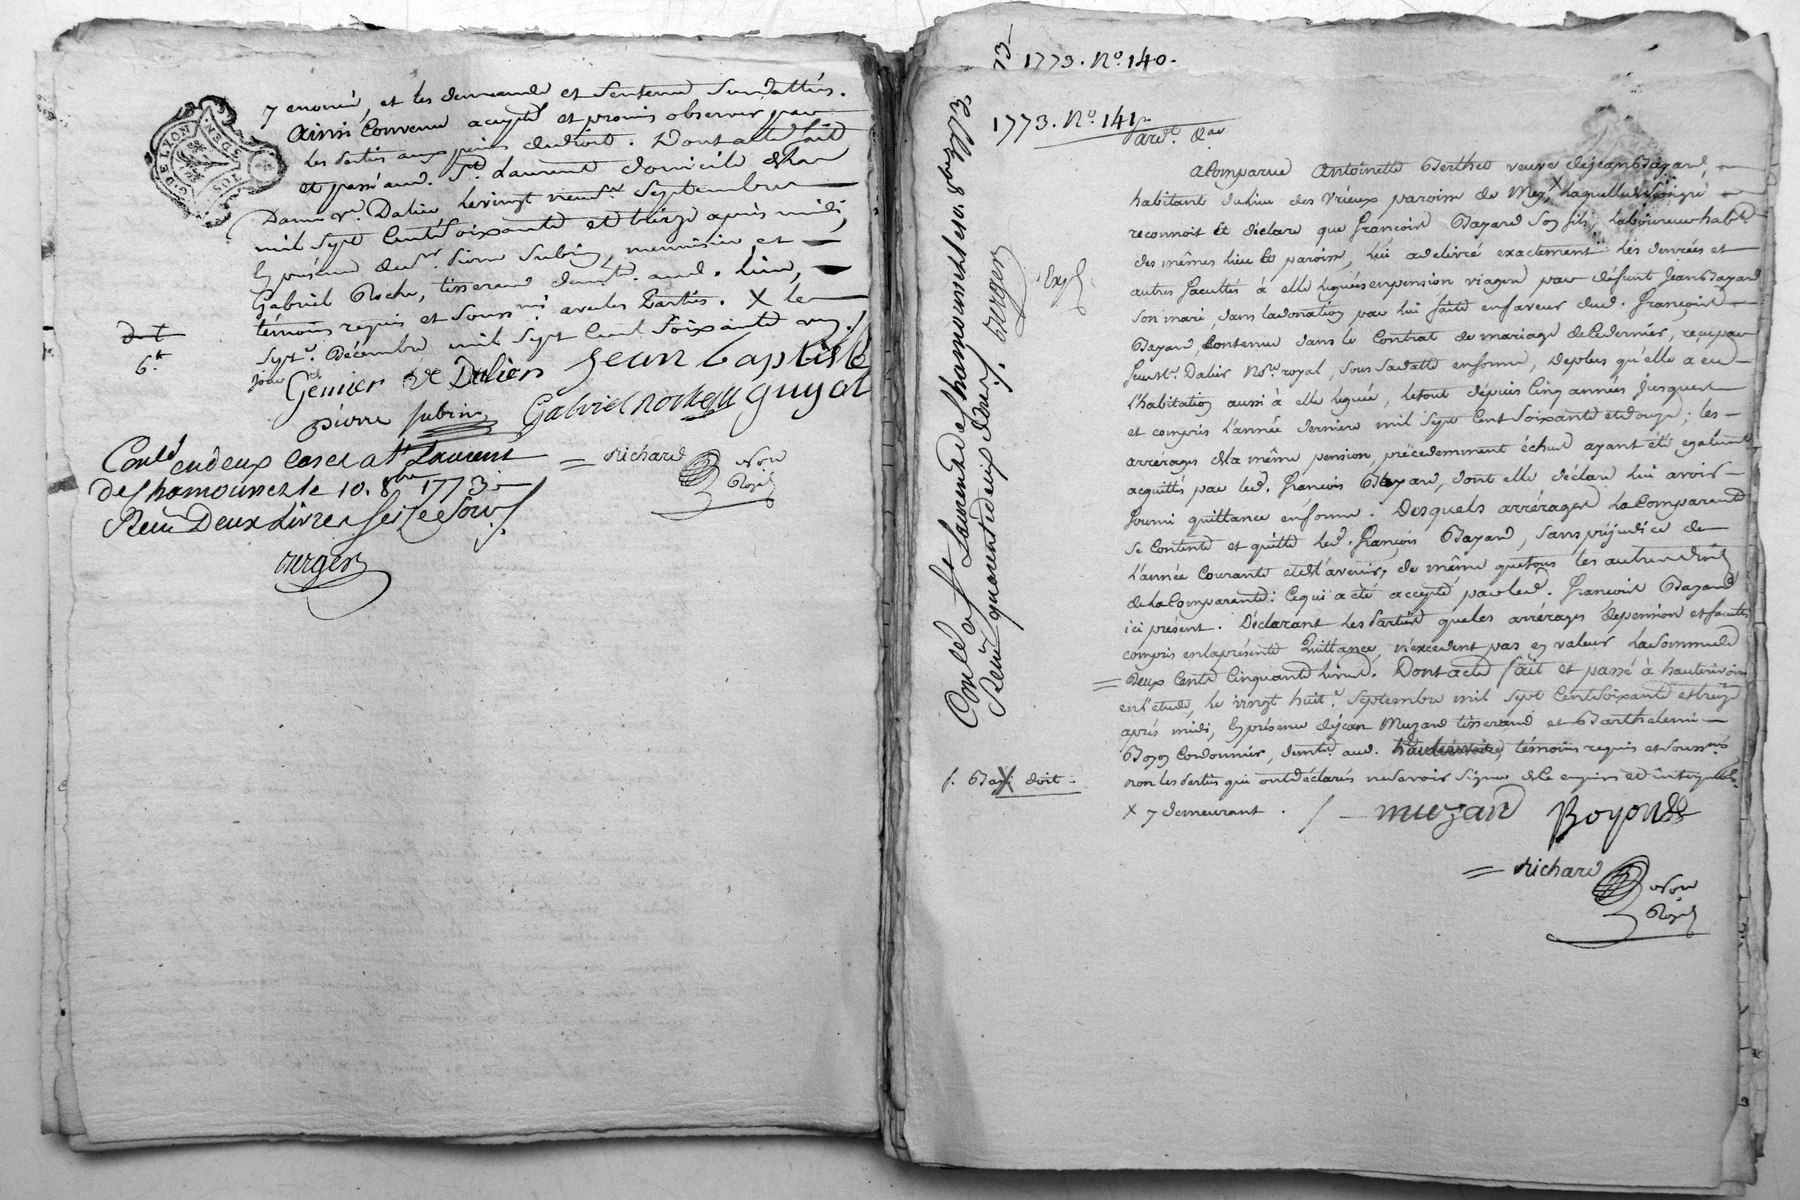 G. DE LYON
y enoncé, et les demande et Sentence Susdattés.
Ainsi Convenu accepté et promis observer par
les parties aux peines du droit. Dont acte fait
et passé aud. St. Laurent domicile de la
Dame ve. Dalier le vingt neuf Septembre
mil Sept Cent Soixante et treize après midi,
En présence de Sr. pierre Subrin, menuisier et
Gabriel Roche, tisserand demts. aud. lieu,
témoins requis et Souss. avec les Parties. X le
Sept. Décembre mil Sept Cent Soixante
Genier Ve Dalier Jean baptiste
pierre subrin Gabriel roche guyot
dt
6.
Conlé en deux cases a St Laurent
de Chamousset le 10. 8bre 1773
Reçu Deux Livres Seize Sous
verger
richard
Nore
Royal
1773. No. 140.
1773. No. 141
Conlé a St Laurent de Chamousset le 10. 8bre 1773
Reçu quarante deux Sous. verger
Exp
A Comparue Antoinette Berthet veuve de jean Bazard,
habitant du lieu des Vrieux paroisse de Meys, laquelle de gré
reconnoit et déclare que françois Bazard Son fils, laboureur habt.
des mêmes lieu et paroisse, lui a délivré exactement les denrées et
autres facultés à elle léguées en pension viagere par défunt Jean Bazard
Son mari, dans la donation par lui faite en faveur dud. françois
Bazard, Contenue dans le Contrat de mariage de Ce dernier, reçu par
feu Me. Dalier Nore. royal, Sous Sa datte en forme, De plus qu'elle a eu
l'habitation aussi à elle léguée, le tout depuis Cinq années, jusques
et compris l'année dernière mil Sept Cent Soixante et douze; les
arrérages de la même pension, précédemment échus ayant été également
acquittés par led. françois Bazard, dont elle déclare lui avoir
fourni quittance en forme. Desquels arrérages La Comparante
Se Contente et quitte led. françois Bazard, Sans préjudice de
l'année Courante et de l'avenir, de même que tous les autres droits
de La Comparante: Ce qui a été accepté par led. françois Bazard
ici présent. Déclarant les Parties que les arrérages de pension et facultés
compris en la présente Quittance, n'excedent pas en valeur La Somme de
Deux Cents Cinquante Livres. Dont acte fait et passé à hauterivoire
en l'étude, le vingt huit Septembre mil Sept Cent Soixante et treize
après midi, En présence de jean Muzard tisserand et Barthelemi
Boyon Cordonnier, demts. aud. hauterivoire, témoins requis et Souss.
non les Parties qui ont déclarés ne Savoir Signer de ce enquis et interpellés
X y demeurant.
doit
muzard Boyon
richard
Nore
Royal